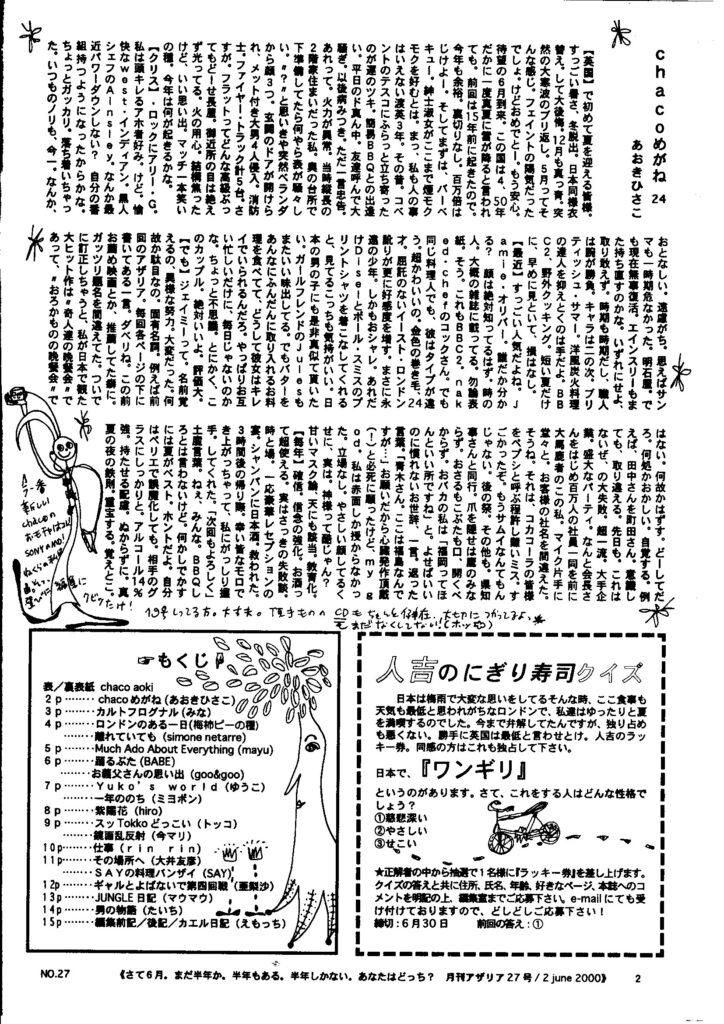 chacoめがね 24
あおきひさこ
【英国】で初めて夏を迎える皆様。
すっごい暑さ、冬厳出、日本同様衣
替え。して大後悔。12月も真っ青、突
然の大寒波のブリ返し。5月ってそ
んな感じ。フェイントの陽気だった
でしょ。けどおめでとー。もう安心。
待望の6月到来。この国は4、50年
だかに一度真夏に雪が降ると言われ
ても、前回は15年前に起きたので。
今年も余裕。裏切りなし。百万倍は
じけよー。そしてまずは、バーベ
キュー。紳士淑女がここまで煙モク
モクを好むとは。まっ、私も人の事
はいえない渡英3年。その昔、コベ
ントのテスコにふらっと立ち寄った
のが運のツキ。簡易BBQとの出逢
い。平日のド真ん中、友達呼んで大
騒ぎ。以後病みつき。ただ一言忠告。
あれって、火力が異常。当時縦長の
2階家住まいだった私。奥の台所で
下準備してたら何やら表が騒々し
い。〝?〟と思いきや突然ベランダ
から顔3つ。玄関のドアが開けら
れ、メット付き大男4人侵入。消防
士。ファイヤー・トラック計5台。
すが。フラットってどんな高級ぶっ
てもどーせ長屋。御近所の目は絶え
ず光ってる。火の用心。結構焦った
けど、いい思い出。マッチ一本笑い
の種。今年は何が起きるかな。
【クリス】・ロックにアリー・G。
私は頭キレるアホ者好み。けど、愉
快なwest・インディアン。黒人
シェフのAinsley。なんか最
近パワーダウンしない?自分の番
組持つようになったからかな。
ちょっとガッカリ。落ち着いちゃっ
た。いつものノリも、今一。なんか、
おとなしい。遠慮がち。思えばサン
マも一時期危なかった。明石屋。で
も現在無事復活。エインスリーもま
た持ち直すのかな。いずれにせよ、
取り敢えず。時期も時期だし、職人
は腕が勝負。キャラは二の次。ブリ
ティッシュ・サマー。洋風炭火料理
の達人を抑えとくのは手だよ。BB
C2。野外クッキング。短い夏だけ
に、早めに見といて、損はなし。
【最近】すっごい人気だよね。J
amie・オリバー。誰だか分か
る?顔は絶対知ってるはず。時の
人。大概の雑誌に載ってる。勿論表
紙。そう。これもBBC2。nak
ed・chefのコックさん。でも
同じ料理人でも、彼はタイプが違
う。超かわいいの。金色の巻き毛、24
才、屈託のないイースト・ロンドン
訛りが更に好感度を増す。まさに永
遠の少年。しかもおシャレ。あれだ
けDiselとポール・スミスのプ
リントシャツを着こなしてくれる
と、見てるこっちも気持がいい。日
本の男の子にも是非真似て貰いた
い。ガールフレンドのJulesも
またいい味出してる。でもバターを
あんなにふんだんに取り入れるお料
理を食べてて、どうして彼女はキレ
イでいられるんだろ。やっぱりお互
い忙しいだけに、毎日じゃないのか
な。ちょっと不思議。とにかく、こ
のカップル、絶対いいよ。評価大。
【でも】ジェイミーって、名前覚
えるの、異様な努力。大変だった。何
故か駄目なの。固有名詞。例えば前
回のアザリア。毎回各ページの下に
書いてある一言。ダベね。この前
お薦め映画とか、推薦してた癖に。
ガッツリ題名を間違えてた。ついで
に訂正しちゃうと、私が日本で観た
大ヒット作は〝奇人達の晩餐会〟で
あって、〝おろかものの晩餐会〟で
はない。何故かはずす。どーしてだ
ろ。何処かおかしい。自覚する。例
えば、田中さんを町田さん。意識し
ても、取り違える。先日も、これは
ないぜ、の大失敗。超一流。大手企
業。盛大なパーティ。なんと会長さ
んをはじめ百万人の社員一同を前に
大馬鹿者のこの私。マイク片手に
堂々と。お客様の社名を間違えた。
そうね、それは、コカコーラの皆様
をペプシと呼ぶ程許し難いミス。す
ごかったぞ。もうサムイなんてもん
じゃない。後の祭。その他も。県知
事さんと同行。爪を隠せば鷹のみな
らず、おさるもこぶたも口。開くべ
からず。おバカの私は「福岡ってほ
んといい所ですね」と。よせばいい
のに慣れないお世辞。一言。返った
言葉。「青木さん。ここは福島なんで
すが…」お願いだから心臓発作頂戴
(!)と必死に願ったけど、my g
od。私は赤面しか授からなかっ
た。立場なし。やさしい顔してるく
せに、実は、神様って酷じゃん?
甘いマスク論。天にも該当。教育化。
【毎年】確信。信念の強化。お酒っ
て超使える。実はさっきの失敗談、
時と場。一応豪華レセプションの
宴。シャンパンに日本酒。救われた。
3時間後の帰り際。幸い皆なモロで
き上がっちゃって、私にがっしり握
手。してくれた。「次回もよろしく」
土産言葉。ねぇ、みんな。BBQし
ろとは言わないけど。何かしでかす
には夏がベスト。ホントだよ。自分
はペリエで誤魔化しても、相手のグ
ラスにしっかりと。アルコール14%
強。持たせる配慮。ぬからずに。真
夏の夜の鉄則。重宝する。覚えとこ。
今一番
新しい
chacoの
おもちゃはコレ
SONY AIBO!
福岡に
クビッたけ!
☞もくじ☟
表/裏表紙 chaco aoki
2p ―― chacoめがね(あおきひさこ)
3p ―― カルトフログナル(みな)
4p ―― ロンドンのある一日(梅柿ピーの種)
―― 離れていても(simone netarre)
5p ―― Much Ado About Everything (mayu)
6p ―― 踊るぶた(BABE)
―― お義父さんの思い出(goo&goo)
7p ―― Yuko's world(ゆうこ)
―― 一年ののち(ミヨポン)
8p ―― 紫陽花(hiro)
9p ―― スッTokkoどっこい(トッコ)
―― 鏡面乱反射(今マリ)
10p ―― 仕事(rin rin)
11p ―― その場所へ(大井友彦)
―― SAYの料理バンザイ(SAY)
12p ―― ギャルとよばないで第四回戦(亜梨沙)
13p ―― JUNGLE日記(マウマウ)
14p ―― 男の物語(たいち)
15p ―― 編集前記/後記/カエル日記(えもっち)
人吉のにぎり寿司クイズ
日本は梅雨で大変な思いをしてるそんな時、ここ食事も
天気も最低と思われがちなロンドンで、私達はゆったりと夏
を満喫するのでした。今まで弁解してたんですが、独り占め
も悪くない。勝手に英国は最低と言わせとけ。人吉のラッ
キー券。同感の方はこれも独占して下さい。
日本で、『ワンギリ』
というのがあります。さて、これをする人はどんな性格で
しょう?
①慈悲深い
②やさしい
③せこい
★正解者の中から抽選で1名様に『ラッキー券』を差し上げます。
クイズの答えと共に住所、氏名、年齢、好きなページ、本誌へのコ
メントを明記の上、編集室までご応募下さい。e-mailにても受
け付けておりますので、どしどしご応募下さい!
締切:6月30日 前回の答え:①
NO.27 《さて6月。まだ半年か。半年もある。半年しかない。あなたはどっち? 月刊アザリア27号/2 june 2000》 2